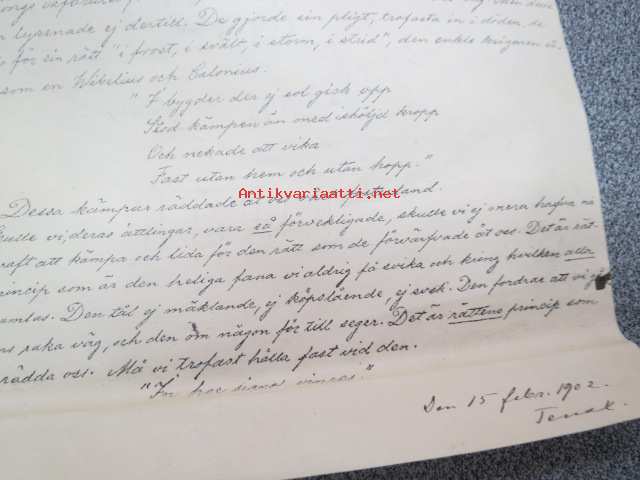 lyssnade ej dertill. De gjorde sin pligt, trofasta in i döden, de
för sin rätt "i frost, i svält, i storm, i strid", den enkle krigaren
som en Wibelius och Calonius.
"I bygder der ej sol gick opp
Stod kämpen än med isköljd kropp
Och nekade att vika
Fast utan hem och utan hopp."
Dessa kämpar räddade åt oss
Antikvariaatti.net
land.
Skulle vi, deras ättlingar, vara så förvekligade, skulle vi ej mera hafva
kraft att kämpa och lida för den rätt som de förvärfvade åt oss. Det är rät-
princip som är den heliga fana vi aldrig få svika och kring hvilken alla
samlas. Den tål ej mäklande, ej köpslående, ej svek. Den fordrar att vi gå
raka väg, och den om någon för till seger. Det är rättens princip som
rädda oss. Må vi trofast hålla fast vid den.
"In hoc signo vinces."
Den 15 febr. 1902.